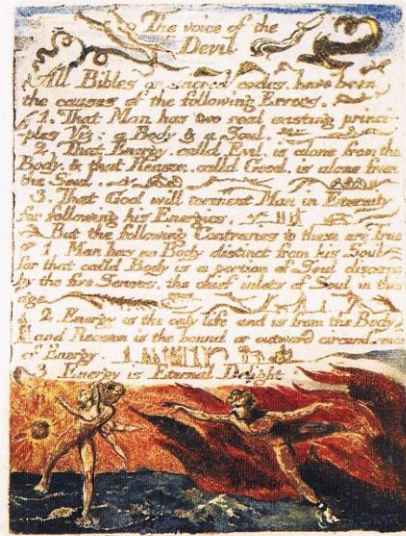 The voice of the
Devil
All Bibles or sacred codes. have been
the causes of the following Errors.
1. That Man has two real existing princi-
ples Viz: a Body & a Soul.
2. That Energy. calld Evil. is alone from the
Body. & that Reason. calld Good. is alone from
the Soul.
3. That God will torment Man in Eternity
for following his Energies.
But the following Contraries to these are True
1 Man has no Body distinct from his Soul
for that calld Body is a portion of Soul discernd
by the five Senses. the chief inlets of Soul in this
age
2. Energy is the only life and is from the Body
and Reason is the bound or outward circumference
of Energy.
3 Energy is Eternal Delight